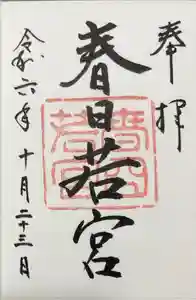 奉拝
春日若宮
令和六年十月二十三日